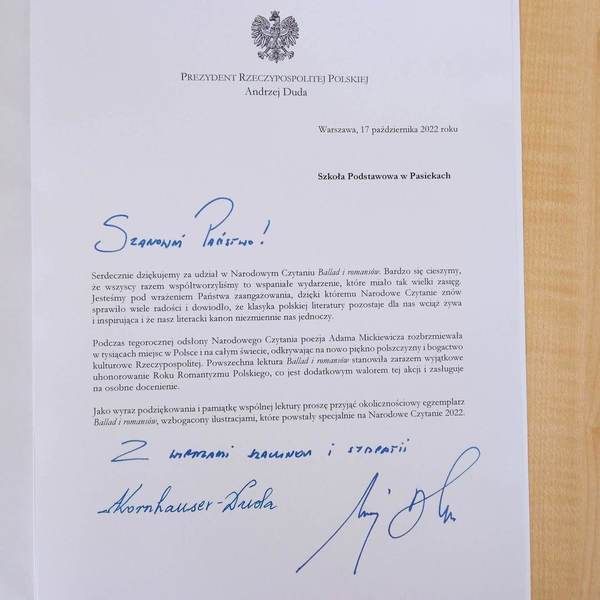 PREZYDENT RZECZYPOSPOLITEJ POLSKIEJ
Andrzej Duda
Warszawa, 17 października 2022 roku
Szkoła Podstawowa w Pasiekach
Szanowni Państwo!
Serdecznie dziękujemy za udział w Narodowym Czytaniu Ballad i romansów. Bardzo się cieszymy,
że wszyscy razem współtworzyliśmy to wspaniałe wydarzenie, które miało tak wielki zasięg.
Jesteśmy pod wrażeniem Państwa zaangażowania, dzięki któremu Narodowe Czytanie znów
sprawiło wiele radości i dowiodło, że klasyka polskiej literatury pozostaje dla nas wciąż żywa
i inspirująca i że nasz literacki kanon niezmiennie nas jednoczy.
Podczas tegorocznej odsłony Narodowego Czytania poezja Adama Mickiewicza rozbrzmiewała
w tysiącach miejsc w Polsce i na całym świecie, odkrywając na nowo piękno polszczyzny i bogactwo
kulturowe Rzeczypospolitej. Powszechna lektura Ballad i romansów stanowiła zarazem wyjątkowe
uhonorowanie Roku Romantyzmu Polskiego, co jest dodatkowym walorem tej akcji i zasługuje
na osobne docenienie.
Jako wyraz podziękowania i pamiątkę wspólnej lektury proszę przyjąć okolicznościowy egzemplarz
Ballad i romansów, wzbogacony ilustracjami, które powstały specjalnie na Narodowe Czytanie 2022.
Z wyrazami szacunku i sympatii
Kornhauser-Duda